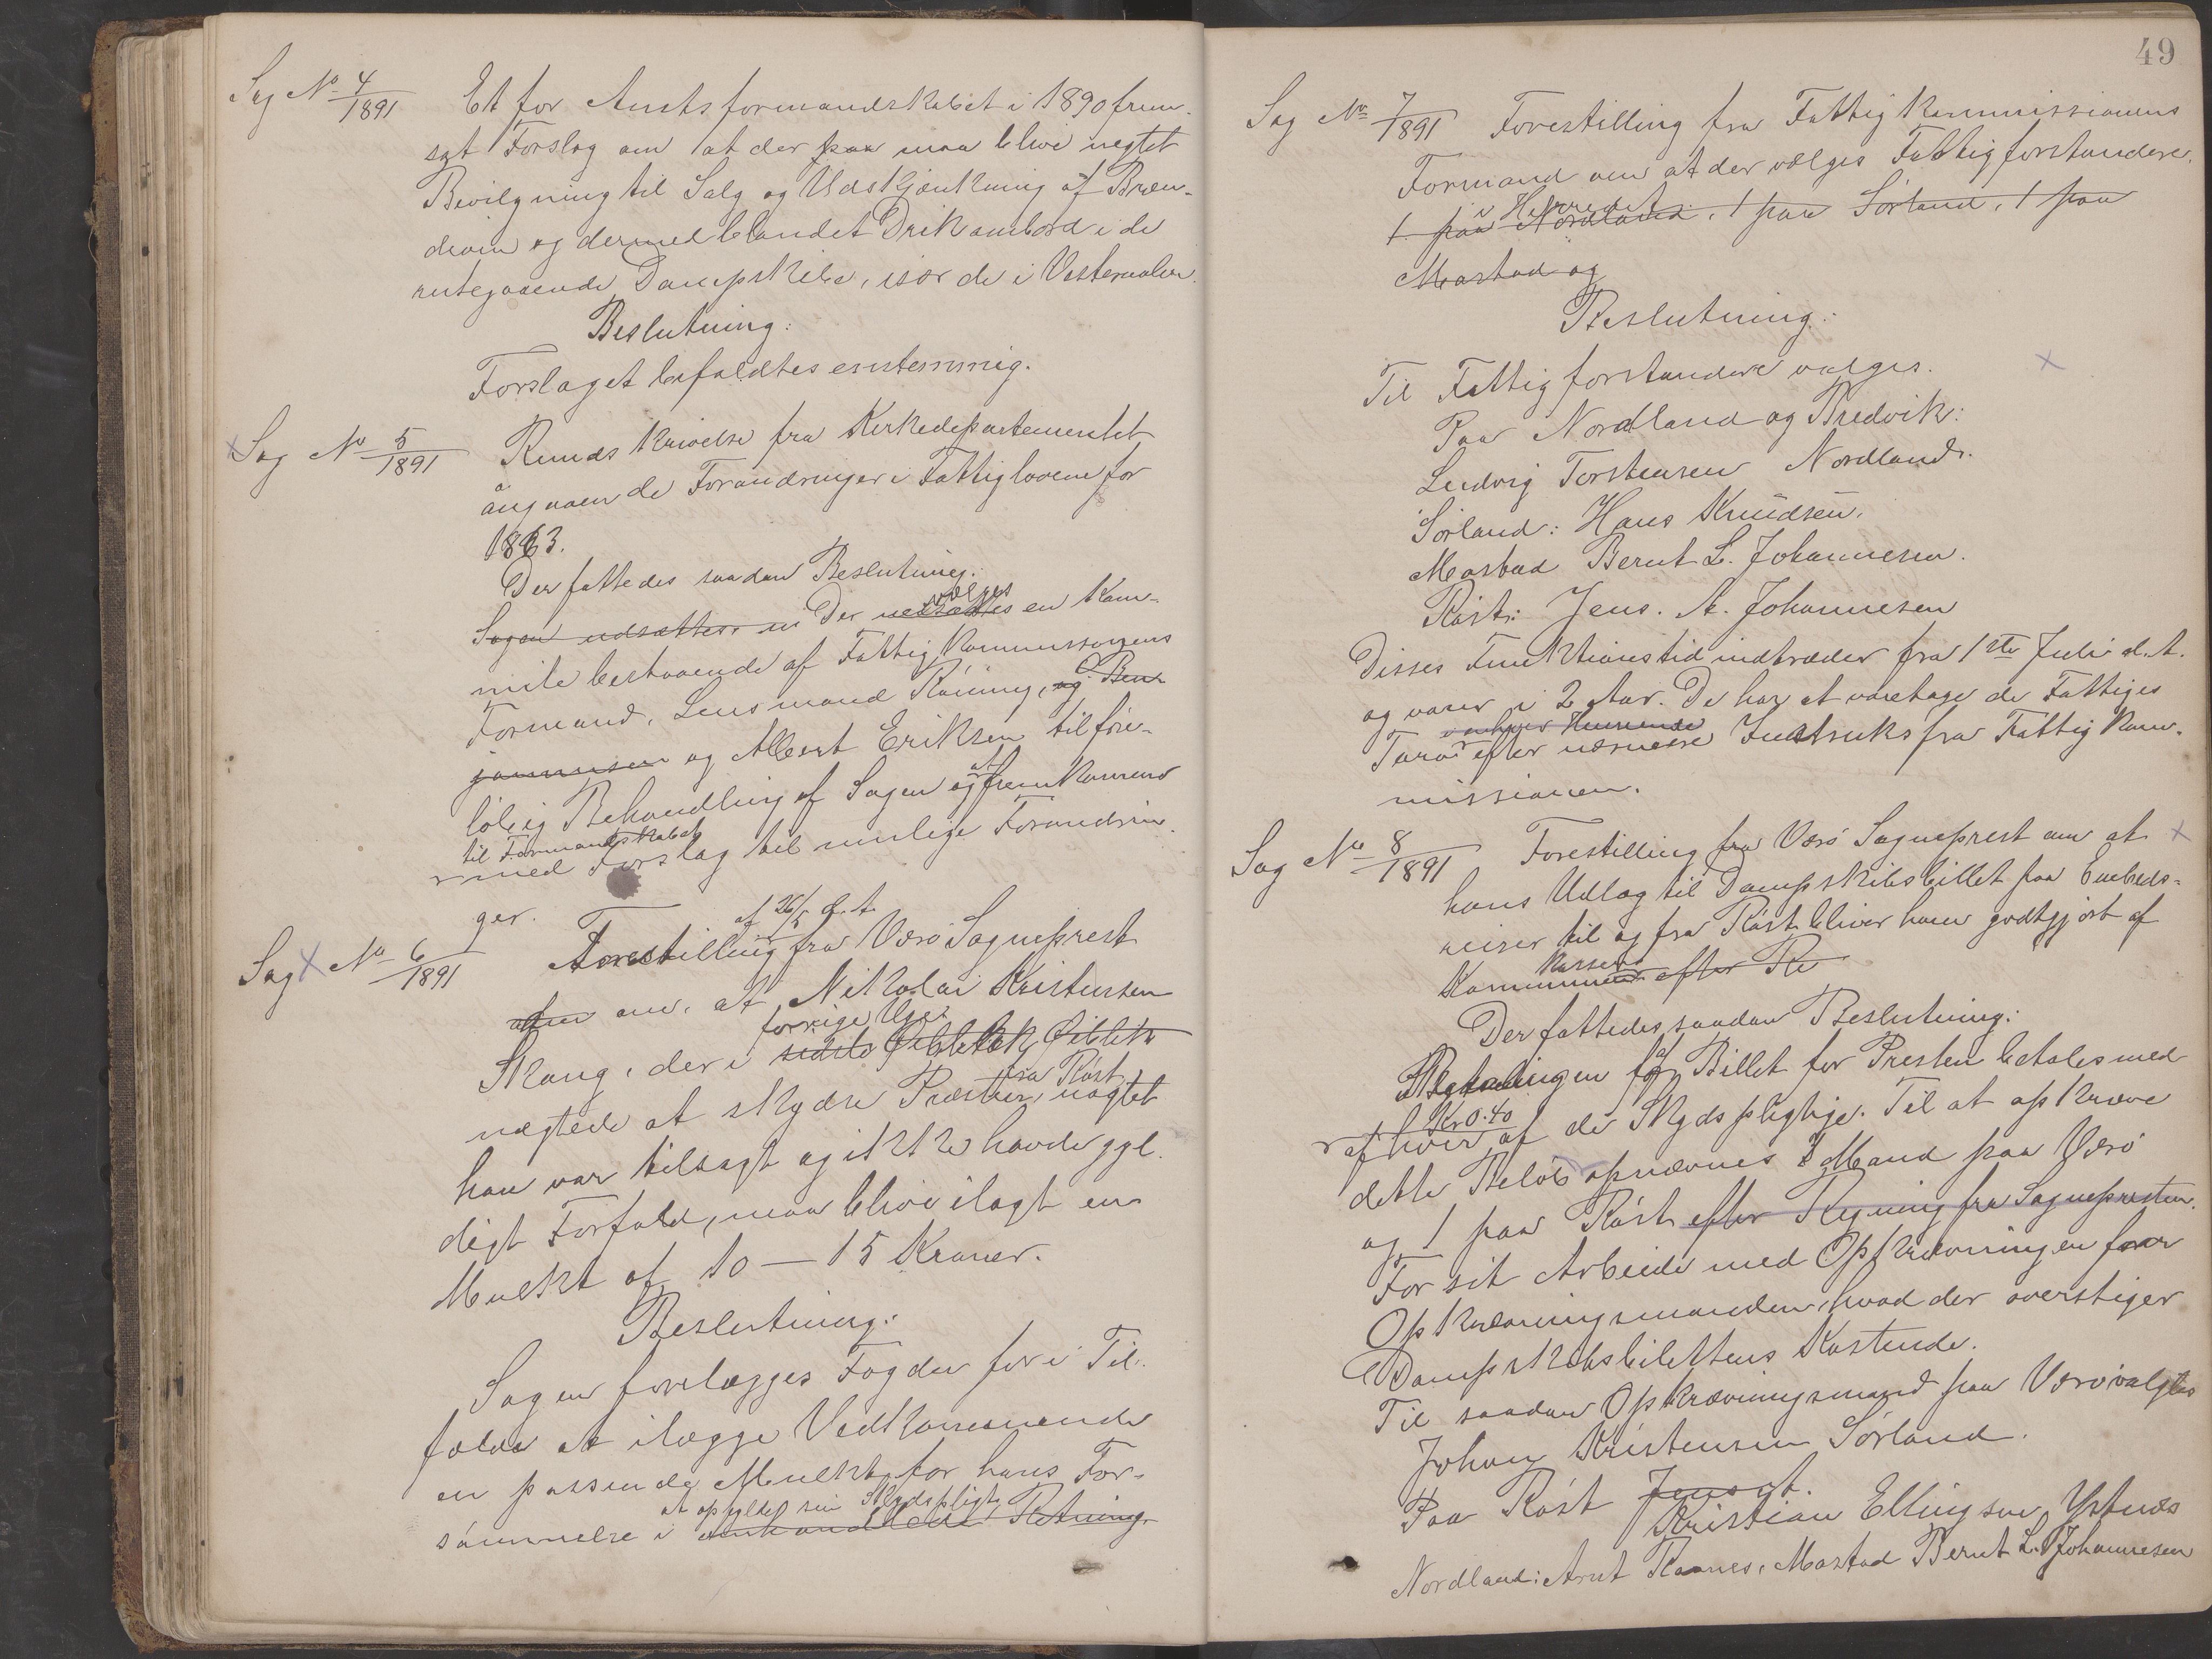 Sag No 4/1891 Et for Amtsformandskabet i 1890 frem-
sat Forslag om at der paa maa blive negtet
Bevilgning til Salg og Udskjænkning af Bræn-
devin og dermed blandet Drik ombord i de
rutegaaende Dampskibe, især de i Vesteraalen.
Beslutning:
Forslaget befaldtes enstemmig.
Sag No 5/1891 Rundskrivelse fra Kirkedepartementet
angaaende Forandringer i Fattigloven for
1863.
Der fattedes saadan Beslutning:
Sagen udsættes Der nedsættes vælges en Kom-
mite bestaaende af Fattigkommissionens
Formand, Lensmand Röning, og O. Ben-
jaminsen og Albert Eriksen til fore-
löbig Behandling af Sagen og at fremkomme
til Formandskabet
med Forslag til mulige Forandrin-
ger.
af 26/5 d. A.
Sag No 6/1891 Forestilling fra Værö Sogneprest
om, at Nikolai Kristensen
forrige Uge
Skang, der i sidste Öieblik Öieblik
fra Röst
nægtede at skydse Præsten, nægtet
han var tilsagt og ikke havde gyl-
digt Forfald, maa blive ilagt en
Mulkt af 10 — 15 Kroner.
Beslutning:
Sagen forelægges Fogden for i Til-
fælde at ilægge Vedkommende
en passende Mulkt for hans For-
at opfylde sin Skydspligt
sömmelse i Retning.
49
Sag No 7/1891 Forestilling fra Fattigkommissionens
Formand om at der vælges Fattigforstandere
i Herredet
1 paa Nordland, 1 paa Sörland, 1 paa
Mostad og
Beslutning:
Til Fattigforstandere valges.
Paa Nordland og Bredvik:
Ludvig Torstensen Nordland.
Sörland: Hans Knudsen.
Mostad Bernt L. Johannesen.
Röst: Jens. A. Johannesen
Disses Funktionstid indtræder fra 1ste Juli d. A.
og varer i 2 Aar. De har at varetage de Fattiges
Tarv efter nærmere Instruks fra Fattigkom-
missionen.
Sag No 8/1891 Forestilling fra Værö Sogneprest om at
hans Udlag til Dampskibsbillet paa Embeds-
reiser til og fra Röst bliver ham godtgjort af
Kassen
Kommunen efter Re
Der fattedes saadan Beslutning:
Betalingen for af Billet for Presten betales med
Kr 0.40
af hver af de Skydspligtige. Til at opkræve
dette Belöb opnævnes 1 Mand paa Værö
og 1 paa Röst efter Regning fra Sognepresten.
For sit Arbeide med Opkrævningen faar
Opkrævningsmanden, hvad der overstiger
Dampskibsbilettens Kostende.
Til saadan Opkrævningsmand paa Værö valgtes
Johan Kristensen Sörland.
Paa Röst Jens A.
Kristian Ellingsen Ystnes
Nordland: Arnt Raanes, Mostad Bernt L. Johannesen